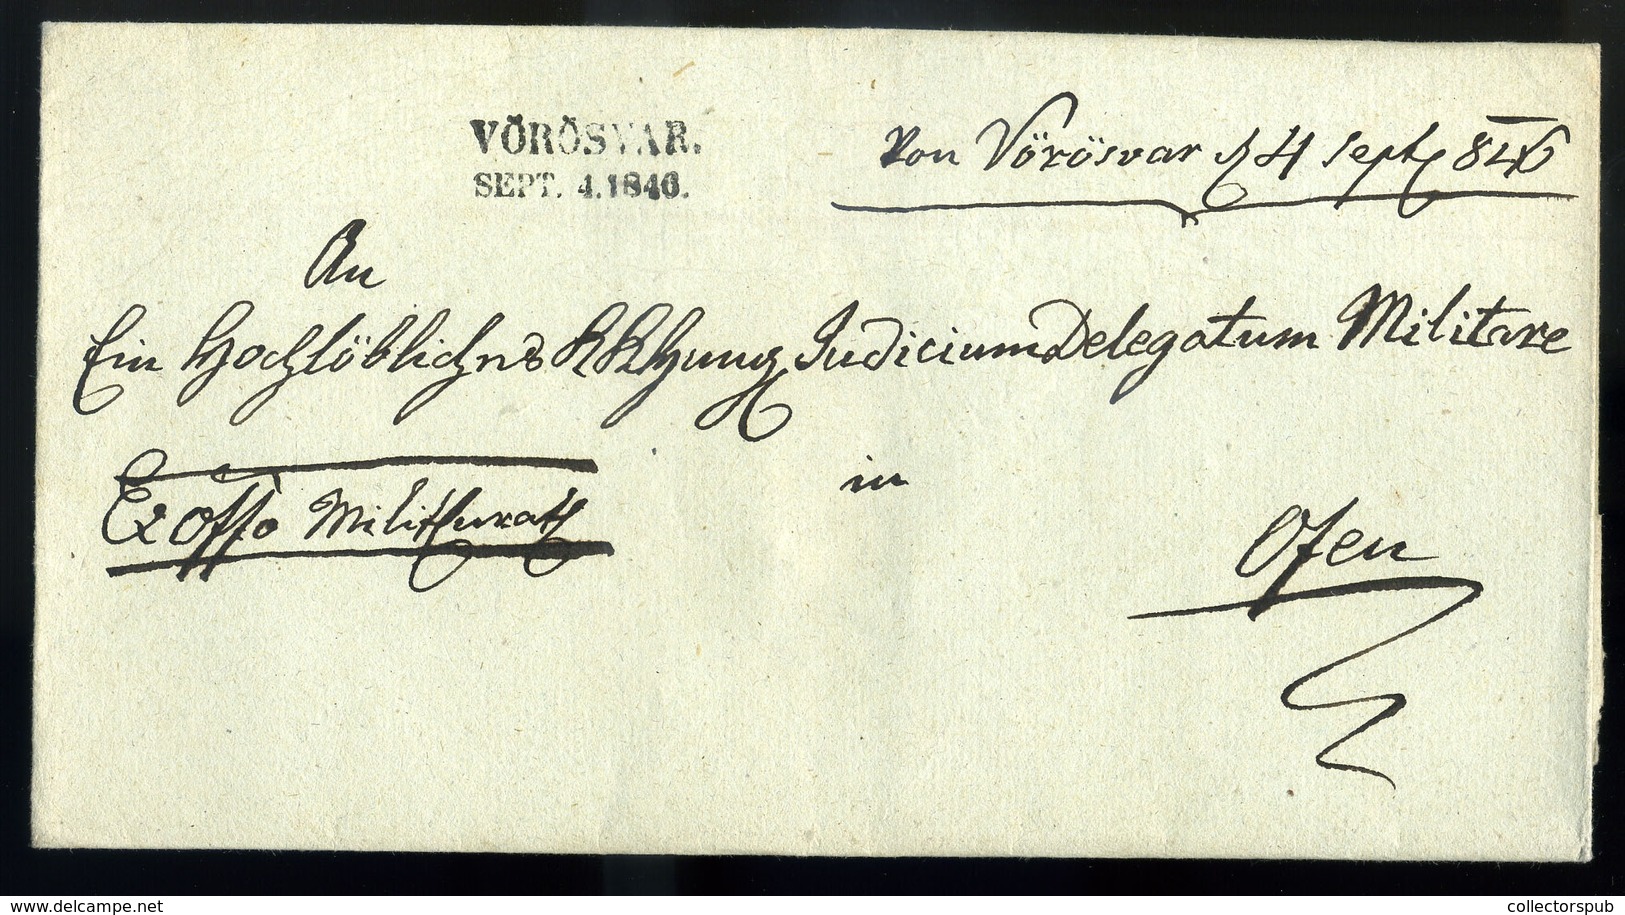 VÖRÖSVAR.
SEPT. 4. 1846.
Von Vörösvar d 4 Sept 846
An
Ein Hochlöbliches K K Hung Judicium Delegatum Militare
Ex offo
in
Ofen
www.delcampe.net
collectorspub